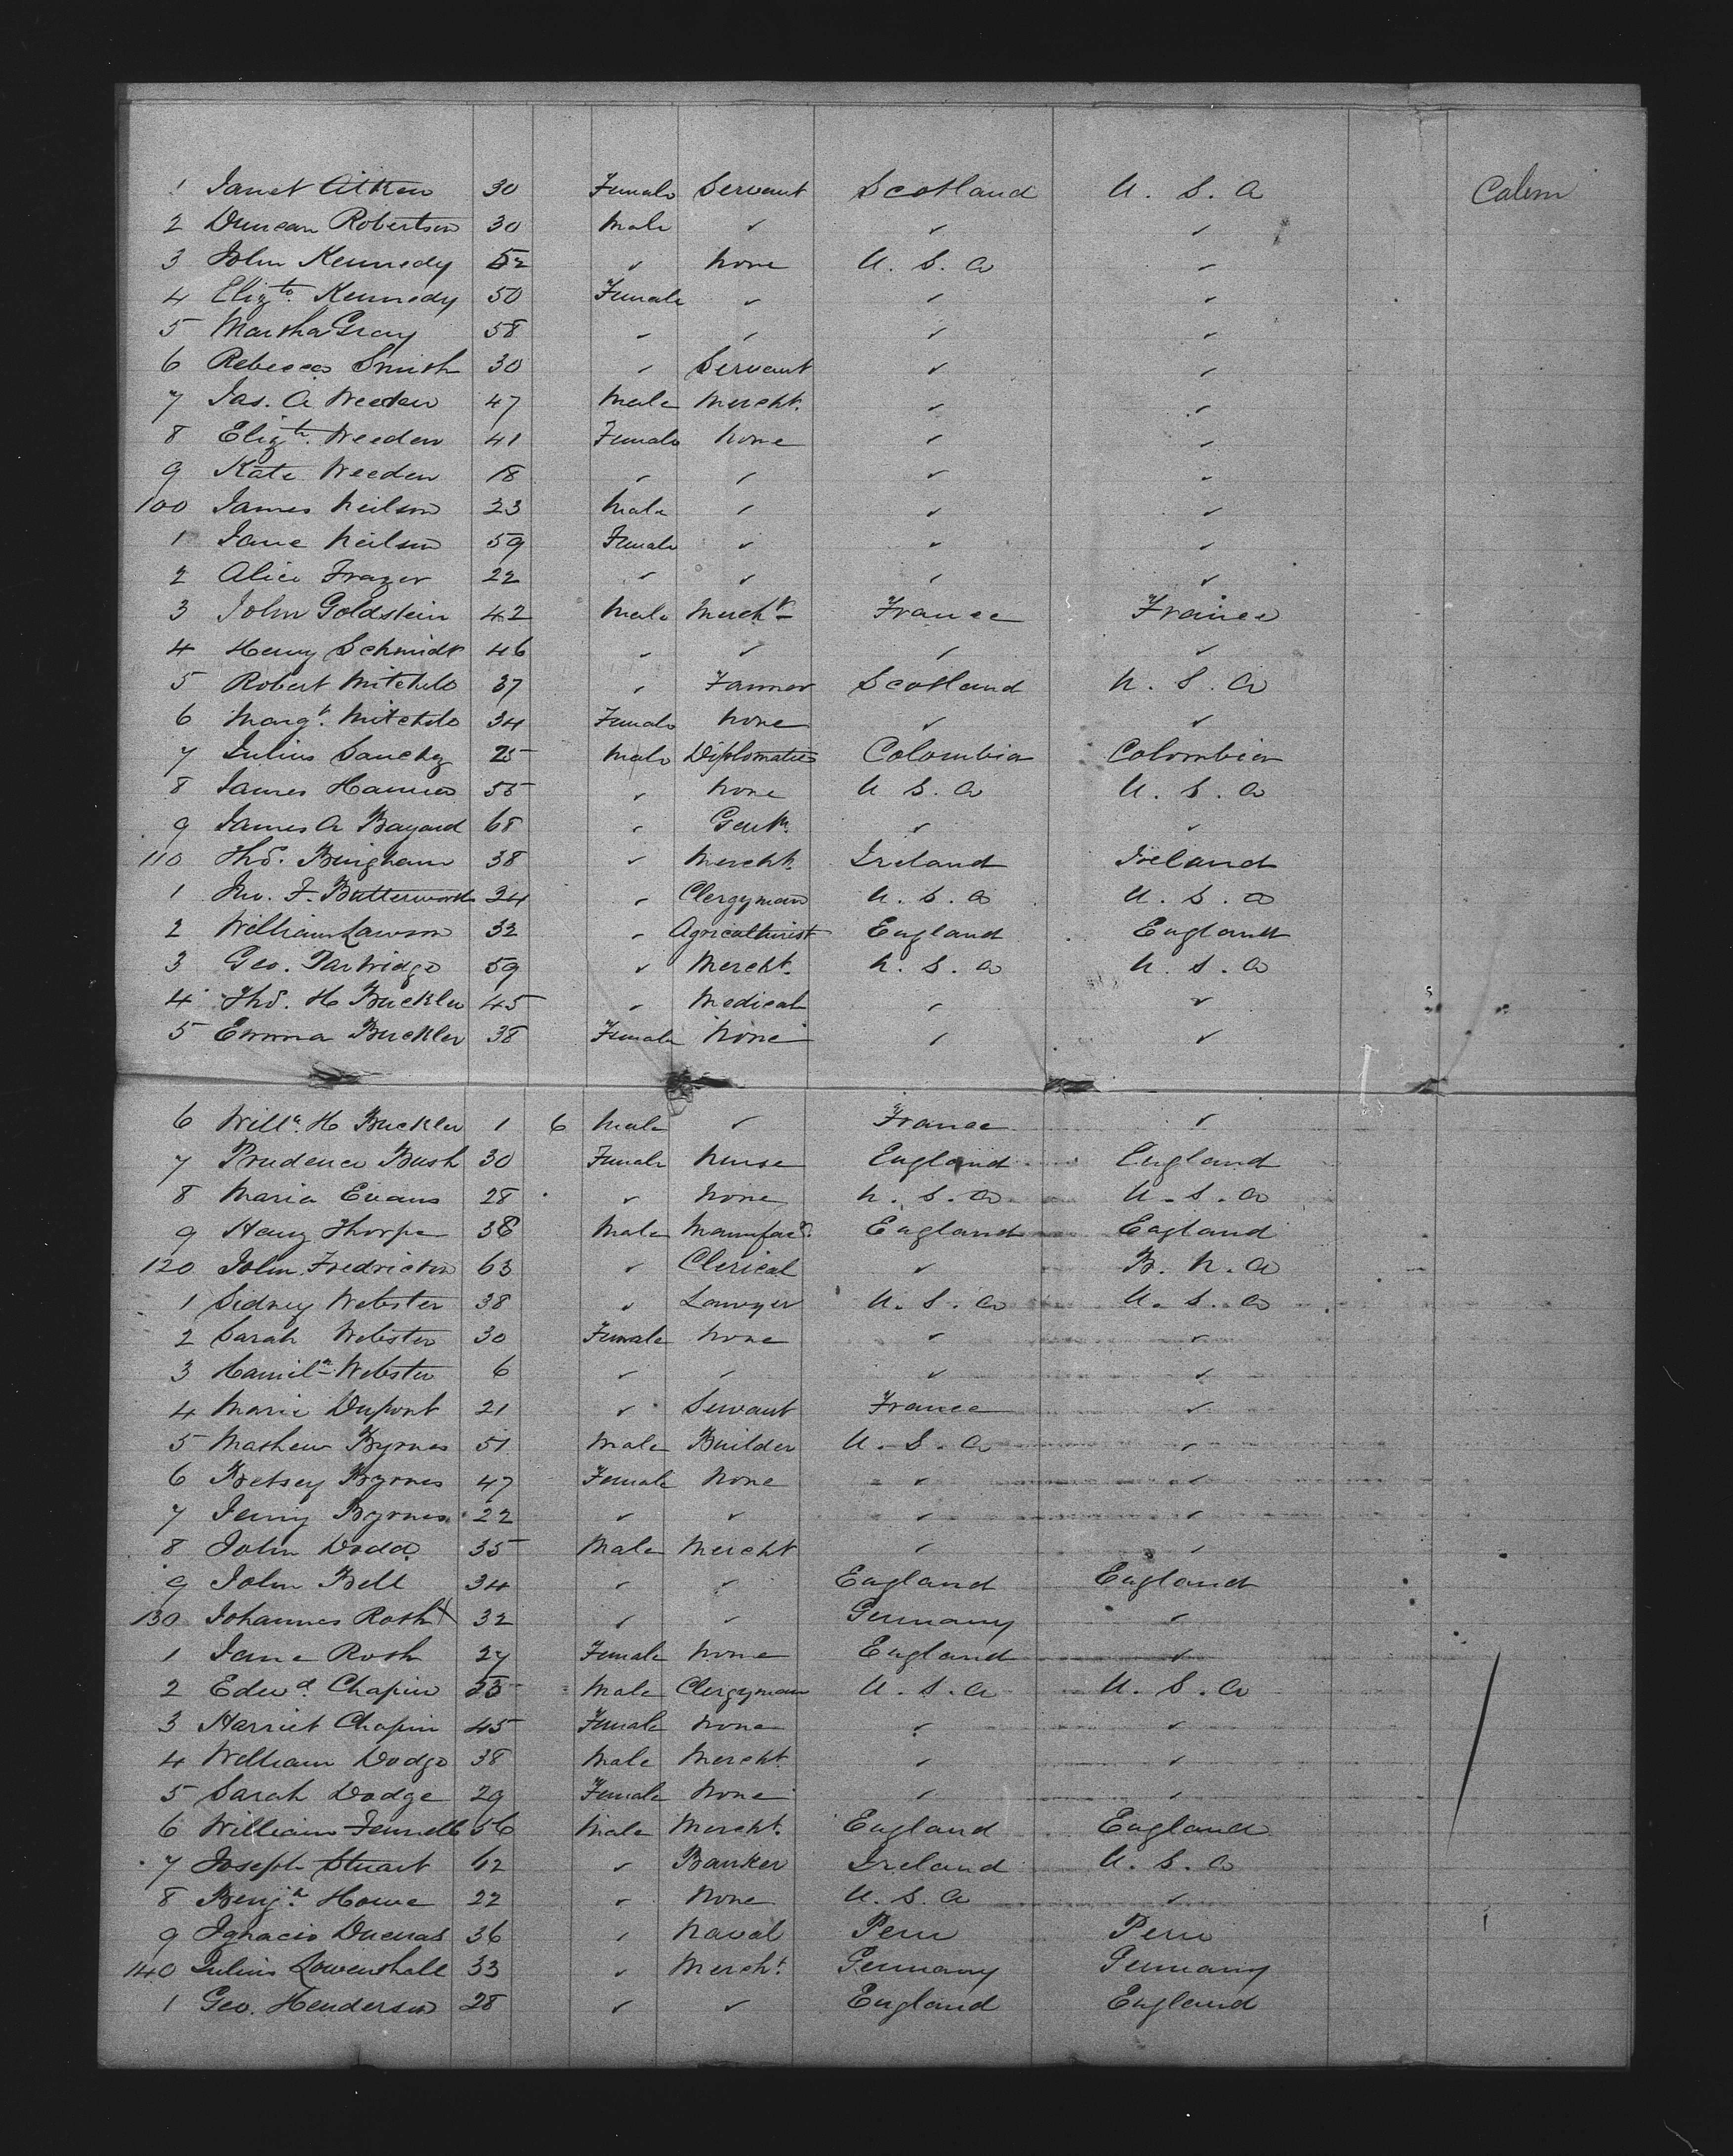 1 Janet Aitken 30 Female Servant Scotland U. S. A Cabin
2 Duncan Robertson 30 Male ✓ ✓ ✓
3 John Kennedy 52 ✓ None U. S. A ✓
4 Elizth. Kennedy 50 Female ✓ ✓ ✓
5 Martha Gray 58 ✓ ✓ ✓ ✓
6 Rebecca Smith 30 ✓ Servant ✓ ✓
7 Jas. A Weeden 47 Male Mercht. ✓ ✓
8 Elizth. Weeden 41 Female None ✓ ✓
9 Kate Weeden 18 ✓ ✓ ✓ ✓
100 James Neilson 23 Male ✓ ✓ ✓
1 Jane Neilson 59 Female ✓ ✓ ✓
2 Alice Frazer 22 ✓ ✓ ✓ ✓
3 John Goldstein 42 Male Mercht France France
4 Henry Schmidt 46 ✓ ✓ ✓ ✓
5 Robert Mitchell 37 ✓ Farmer Scotland U. S. A
6 Margt. Mitchell 34 Female None ✓ ✓
7 Julius Sanchez 25 Male Diplomatic Colombia Colombia
8 James 55 ✓ None U S. A U. S. A
9 James A Bayard 68 ✓ Gentn. ✓ ✓
110 Thos. Bingham 38 ✓ Mercht. Ireland Ireland
1 Jno. F. Butterworth 34 ✓ Clergyman U. S. A U. S. A
2 William Lawson 32 ✓ Agriculturist England England
3 Geo. Partridge 59 ✓ Mercht. U. S. A U. S. A
4 Thos. H Buckler 45 ✓ Medical ✓ ✓
5 Emma Buckler 38 Female None ✓ ✓
6 Willm. H Buckler 1 6 Male ✓ France ✓
7 Prudence Bush 30 Female Nurse England England
8 Maria Evans 28 ✓ None U. S. A U. S. A
9 Harry Thorpe 38 Male Manufacr. England England
120 John Fredricton 63 ✓ Clerical ✓ B. N. A
1 Sidney Webster 38 ✓ Lawyer U. S. A U. S. A
2 Sarah Webster 30 Female None ✓ ✓
3 Hamiln Webster 6 ✓ ✓ ✓ ✓
4 Marie Dupont 21 ✓ Servant France ✓
5 Mathew Byrnes 51 Male Builder U. S. A ✓
6 Betsey Byrnes 47 Female None ✓ ✓
7 Jenny Byrnes 22 ✓ ✓ ✓ ✓
8 John Dodd 35 Male Mercht ✓ ✓
9 John Bell 34 ✓ ✓ England England
130 Johannes Roth 32 ✓ ✓ Germany ✓
1 Jane Roth 27 Female None England ✓
2 Edwd. Chapin 55 Male Clergyman U. S. A U. S. A
3 Harriet Chapin 45 Female None ✓ ✓
4 William Dodge 38 Male Mercht. ✓ ✓
5 Sarah Dodge 29 Female None ✓ ✓
6 William Fennell 56 Male Mercht. England England
7 Joseph Stuart 62 ✓ Banker Ireland U. S. A
8 Benjn. Howe 22 ✓ None U. S. A ✓
9 Ignacio Duenas 36 ✓ Naval Peru Peru
140 Julius Lowenthall 33 ✓ Mercht. Germany Germany
1 Geo. Henderson 28 ✓ ✓ England England